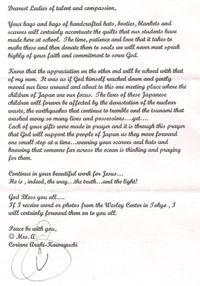 Dearest Ladies of talent and compassion,
Your bags and bags of handcrafted hats, booties, blankets and
scarves will certainly accentuate the quilts that our students have
made here at school. The time, patience and love that it takes to
make these and then donate them to souls we will never meet speak
highly of your faith and commitment to serve God.
Know that the appreciation on the other end will be echoed with that
of my own. It was as if God himself reached down and gently
moved our lives around and about to this one meeting place where the
children of Japan are our focus. The lives of these Japanese
children will forever be affected by the devastation of the nuclear
waste, the earthquakes that continue to tremble and the tsunami that
washed away so many lives and possessions....yet....
Each of your gifts were made in prayer and it is through this prayer
that God will support the people of Japan as they move forward
one small step at a time...wearing your scarves and hats and
knowing that someone far across the ocean is thinking and praying
for them.
Continue in your beautiful work for Jesus...
He is , indeed, the way...the truth...and the light!
God Bless you all....
If I receive word or photos from the Wesley Center in Tokyo , I
will certainly forward them on to you all.
Peace be with you,
Mrs. A
Corinne Araki-Kawaguchi